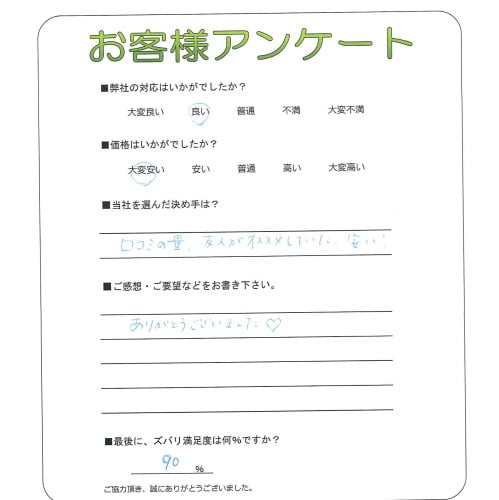 お客様アンケート
■弊社の対応はいかがでしたか？
大変良い 良い 普通 不満 大変不満
■価格はいかがでしたか？
大変安い 安い 普通 高い 大変高い
■当社を選んだ決め手は？
口コミの量、友人がオススメしていた、安い！
■ご感想・ご要望などをお書き下さい。
ありがとうございました♡
■最後に、ズバリ満足度は何％ですか？
90 ％
ご協力頂き、誠にありがとうございました。